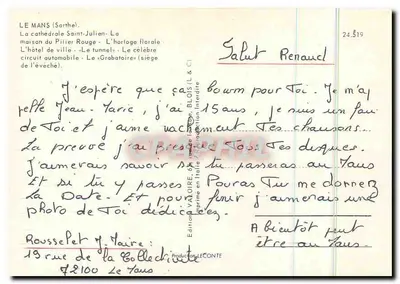 LE MANS (Sarthe).
La cathédrale Saint-Julien - La
maison du Pilier Rouge - L'horloge florale -
L'hôtel de ville - «Le tunnel» - Le célèbre
circuit automobile - Le «Grabatoire» (siège
de l'évêché).
24.519
Salut Renaud
J'espère que ça boum pour Toi. Je m'ap
pelle Jean-Marie, j'ai 15 ans, je suis un fan
de Toi et j'aime vachement Tes chansons...
La preuve j'ai presque Tous Tes disques.
J'aimerais savoir si tu passeras au Mans
Et si tu y passes Pouras Tu me donner
La Date. Et pour finir j'aimerais une
photo de Toi dédicacée.
A bientôt peut
être au Mans.
Rousselet J. Marie :
19 rue de la Collectivité
72100 Le Mans
Production LECONTE
Editions VALOIRE,
BLOIS (L & C)
Imprimé en Italie
Reproduction Interdite